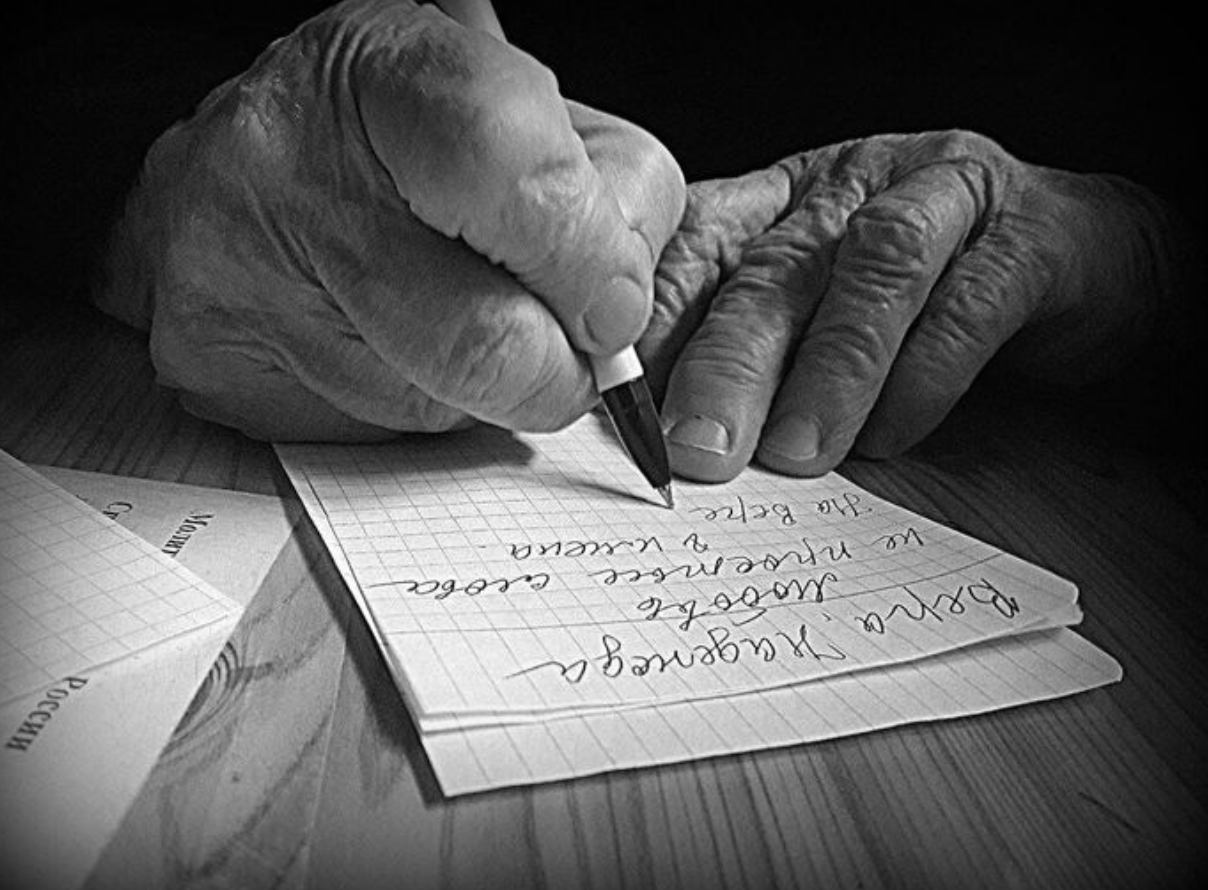 Вера, Надежда
Любовь
не простые слова
и имена
На Вере
Молит
Сл
России